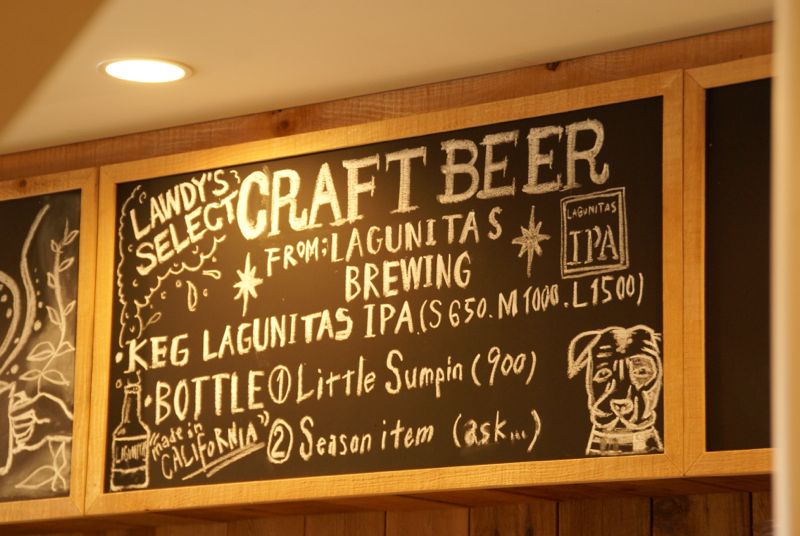 LAWDY'S
SELECT
CRAFT BEER
FROM; LAGUNITAS
BREWING
LAGUNITAS
IPA
・KEG LAGUNITAS IPA.(S 650. M 1000. L 1500)
・BOTTLE ① Little Sumpin (900)
② Season item (ask...)
"made in
CALIFORNIA"
LAGUNITAS